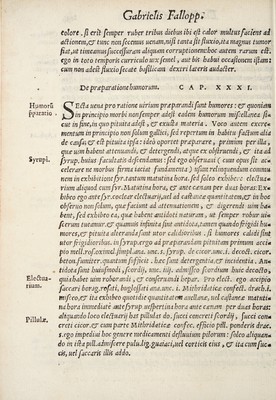 Gabrielis Fallopp.
colore, si erit semper ruber tribus diebus ibi est calor multus faciens ad
actionem, & tunc non secemus uenam, nisi tanta sit fluxio, ita magnus tumor
fiat, ut timeamus successuram aliquam corruptionem: hoc autem rarum est.
ego in toto temporis curriculo uix semel, aut bis habui occasionem istam:
cum non adest fluxio secate basilicam dexteri lateris audacter.
De præparatione humorum. CAP. XXXI.
Humorũ
Secta uena pro ratione uirium præparandi sunt humores: & quoniam
in principio morbi non semper adest eadem humorum miscellanea si-
cut in fine, in quo pituita adest, & exusta materia. Voco autem excre-
mentum in principio non solum gallici, sed repertum in habitu factum alia
de causa; & est pituita ipsa: ideo oportet præparare, primum per illa,
que uim habent attenuandi, & detergendi, atque ex obstruendi, & ita ad
Syrupi.
syrup. huius facultatis defendimus: sed ego obseruaui (cum opus sit
celerare ne morbus firma iactat fundamenta) istum relinquendum commu-
nem in exhibitione syr. tantum matutina hora, sed soleo exhibere electua-
rium aliquod cum syr. Matutina hora, & ante cœnam per duas horas: Exhi-
beo ego ante syr. cochlear electuarij, uel ad castaneæ quantitatem, & in hoc
obseruo non solum, que faciant ad attenuationem, & digerendi uim ha-
beant, sed exhibeo ea, quæ habent antidoti naturam, ut semper robur ui-
scerum tueamur, & quamuis infinita sint antidota, tamen quando frigidi hu-
mores, & pituita alteranda sunt utor calidioribus. si humores calidi sint
utor frigidioribus. in syrup. ergo ad præparandum pituitam primum acci-
pio mell. rosac. simpl. ana. unc. i. syrup. de cicor. unc. i. decoct. cicor.
betoni. sumiter. quantum sufficit: hæc sunt detergentia, & incidentia. An-
tidota sunt huiusmodi,
Electua-
rium.
quis habet uim roborandi, & conseruandi hepar. Pro elect. ego accipio
sacchari borag. rosati, buglossati ana. unc. i. Mithridatica confect. drach. i.
misceo, & ita exhibeo quotidie quantitatem auellanæ, uel castaneæ matuti-
na hora immediate ante syrup. uespertina hora ante cœnam per duas horas:
Pilulæ.
aliquando loco electuarij hæc pilulas do. succi concreti scordij, succi con-
creti cicor. & cum parte Mithridaticæ confec. efficio pill. ponderis drac.
s. ergo impedied hoc genere medicamenti defluuium pilorum: soleo aliquan-
do in ista pill. admiscere pulu. lig. guaiaci, uel corticis eius, & ita cum suc-
cis, uel saccaris illis addo.